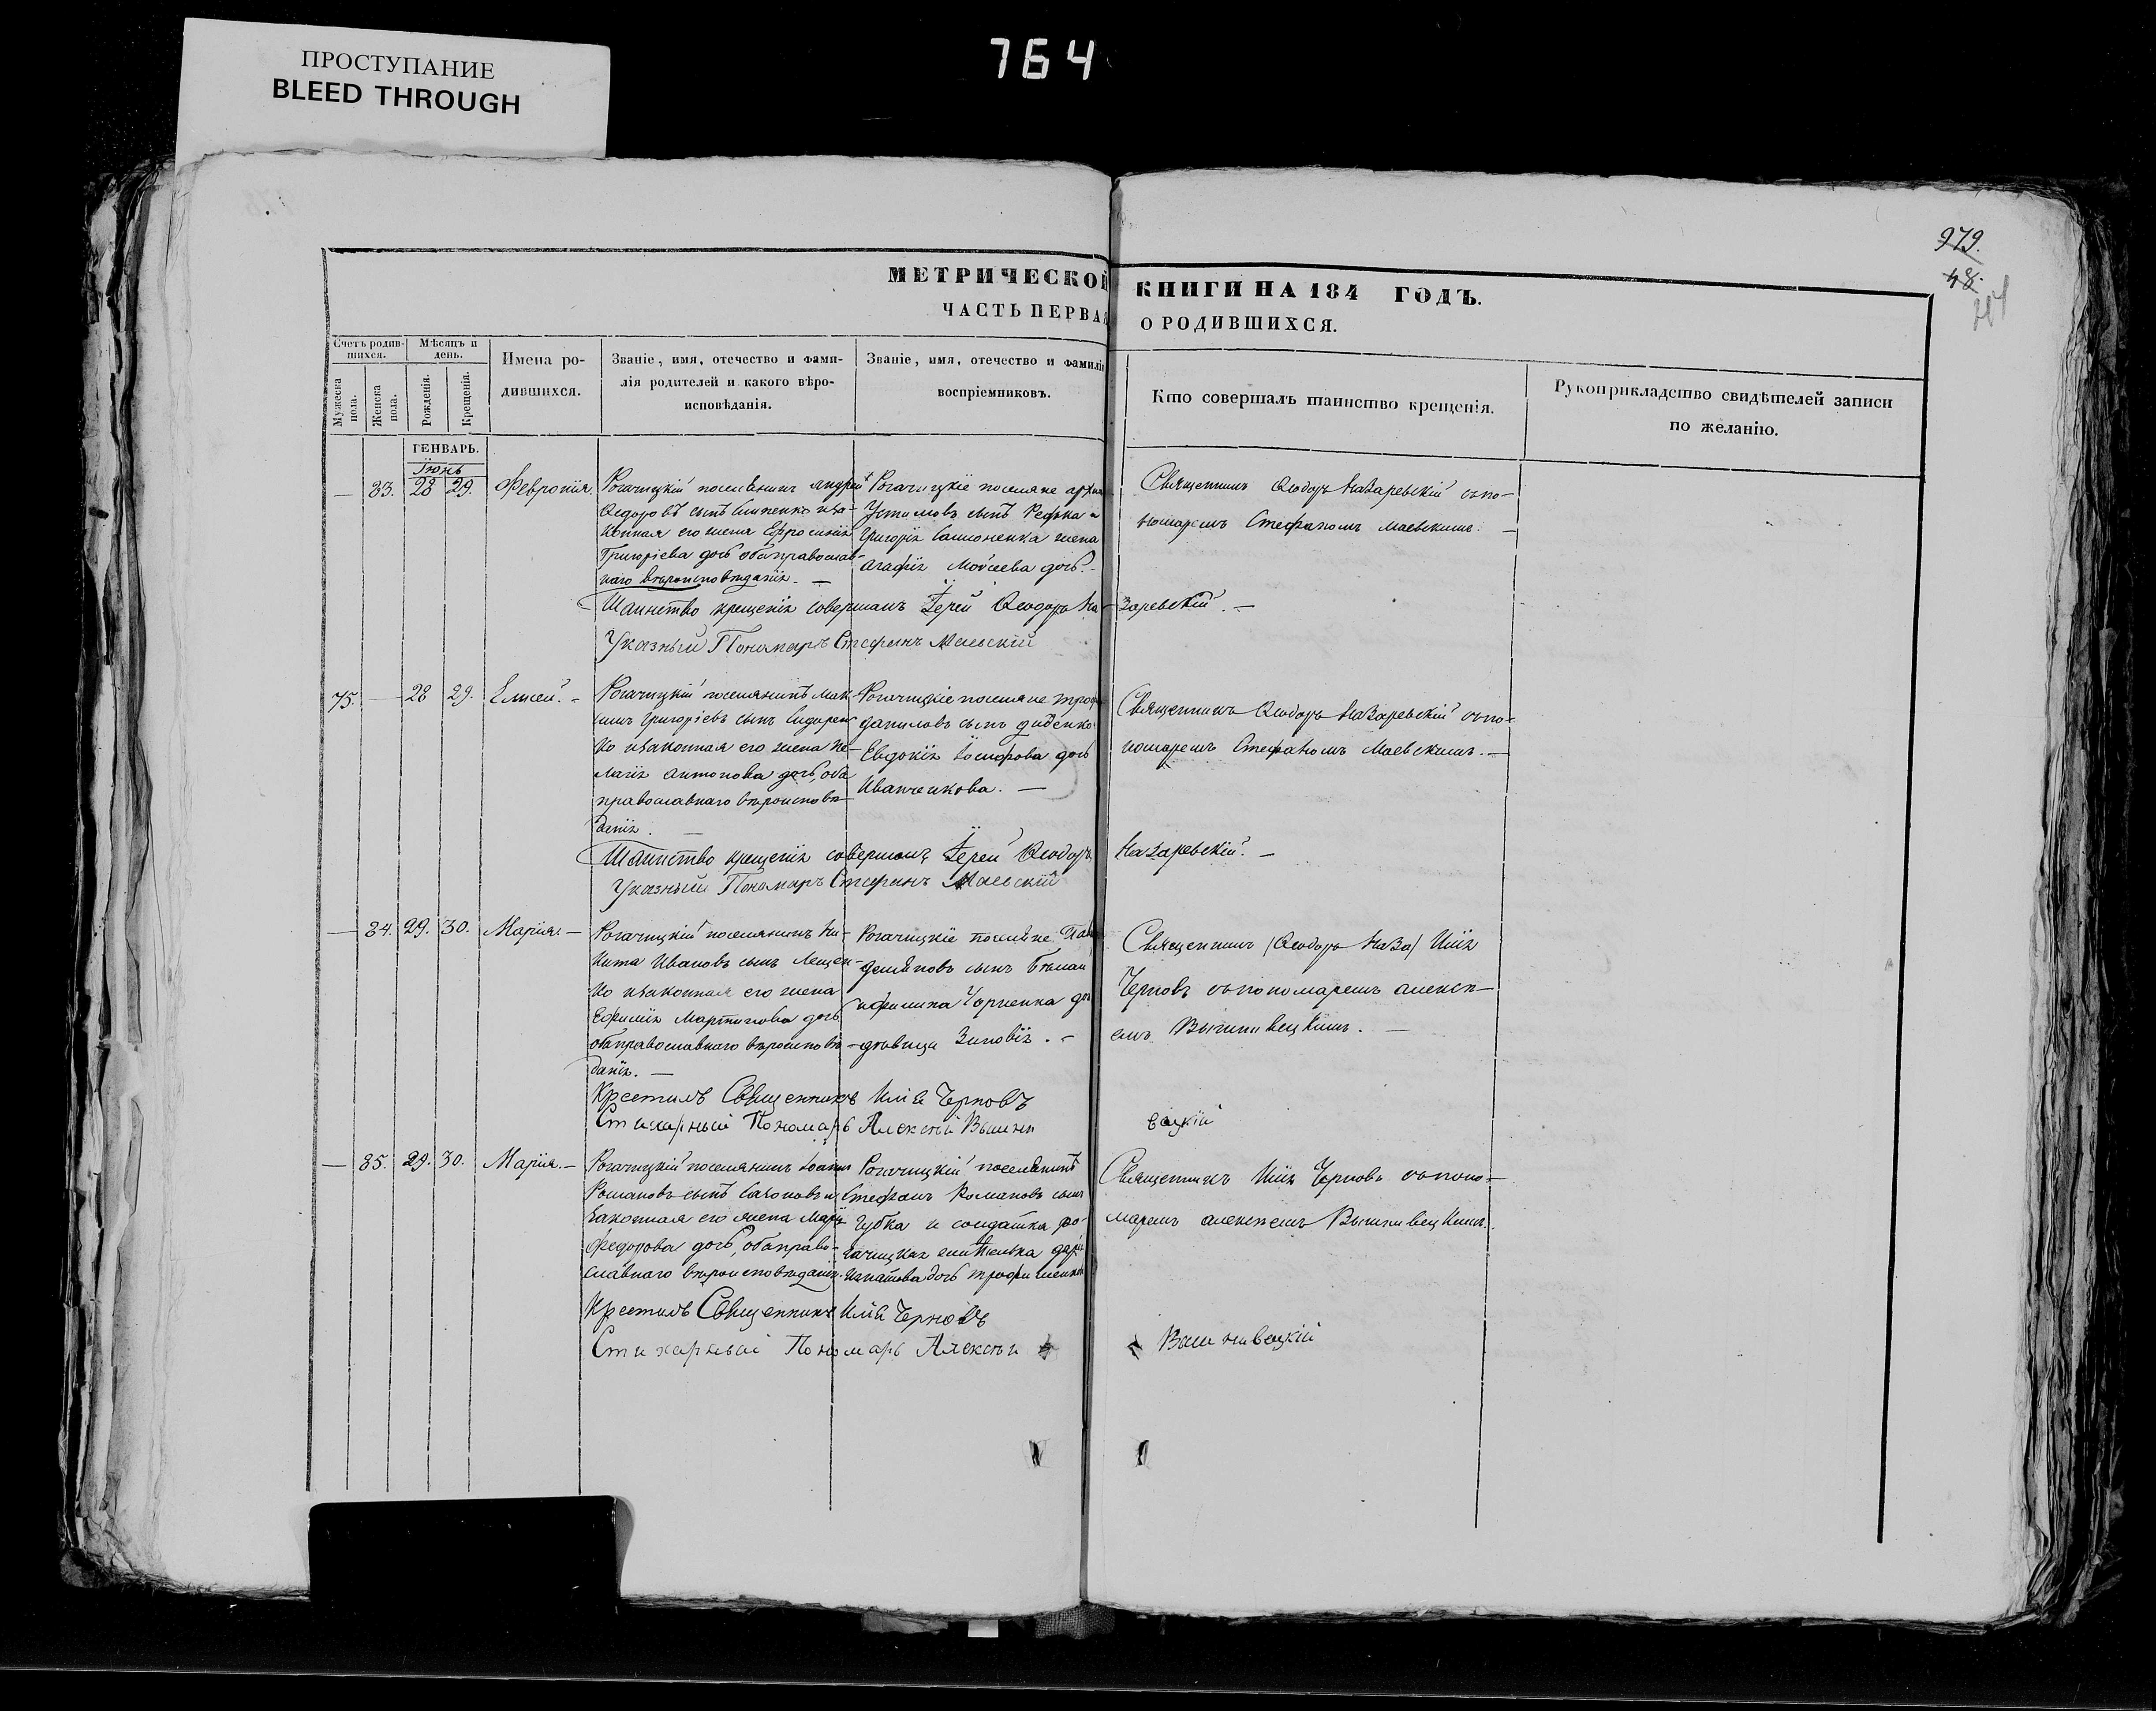 ПРОСТУПАНИЕ
BLEED THROUGH
764
979.
48.
МЕТРИЧЕСКОЙ КНИГИ НА 184 ГОДЪ.
ЧАСТЬ ПЕРВАЯ О РОДИВШИХСЯ.
Счетъ родив-
шихся.
Мужеска
пола.
Женска
пола.
Мѣсяцъ и
день.
Рожденія.
Крещенія.
Имена ро-
дившихся.
Званіе, имя, отечество и фами-
лія родителей и какого вѣро-
исповѣданія.
Званіе, имя, отечество и фамилія
воспріемниковъ.
Кто совершалъ таинство крещенія.
Рукоприкладство свидѣтелей записи
по желанію.
ГЕНВАРЬ.
Іюнь
— 83. 28 29. Февронія
Рогачицкій поселянинъ Андрей
Ѳедоровъ сынъ иза-
конная его жена Ефросинія
Григоріева дочь оба православ-
наго вѣроисповѣданія. —
Рогачицкіе поселяне
Устимовъ сынъ Редька и
Григорія Самоненка жена
Агафія Моѵсеева дочь. -
Священникъ Ѳеодоръ Назаревскій съпо-
номаремъ Стефаномъ Маевскимъ. —
Таинство крещенія совершалъ Іерей Ѳеодоръ На-заревскій. —
Указный Пономарь Стефанъ Маевскій
75. — 28 29. Елисей. -
Рогачицкій поселянинъ Мак-
симъ Григоріевъ сынъ Сидорен-
ко изаконная его жена Пе-
лагія Антонова дочь, оба
православнаго вѣроисповѣ-
денія. —
Рогачицкіе поселяне
Даниловъ сынъ Диденко
Евдокія Іосифова дочь
Иванченкова. —
Священникъ Ѳеодоръ Назаревскій съпо-
номаремъ Стефаномъ Маевскимъ. —
Таинство крещенія совершалъ Іерей Ѳеодоръ Назаревскій. —
Указный Пономарь Стефанъ Маевскій
— 84. 29. 30. Марія. —
Рогачицкій поселянинъ Ни-
кита Ивановъ сынъ Лещен-
ко изаконная его жена
Ефимія Мартинова дочь
оба православнаго вѣроисповѣ-
данія. —
Рогачицкіе поселяне
Деміновъ сынъ
Чорненка
дѣвица Зиновія. -
Священникъ (Ѳеодоръ Наза) Илія
Черновъ съпономаремъ Алексѣ-
емъ Вышнивецкимъ. —
Крестилъ Священникъ Илія Черновъ
Стихарный Пономарь Алексѣй Вышни вецкій
— 85. 29. 30. Марія. —
Рогачицкій поселянинъ Іоаннъ
Романовъ сынъ Сазоновъ и
законная его жена Марія
Федорова дочь, оба право-
славнаго вѣроисповѣданія.
Рогачицкій поселянинъ
Стефанъ Романовъ сынъ
Губка и солдатка ро-
гачицкая
Игнатова дочь
Священникъ Илія Черновъ съпоно-
маремъ Алексѣемъ Вышнивецкимъ.
Крестилъ Священникъ Илія Черновъ
Стихарный Пономарь Алексѣй Вышнивецкій